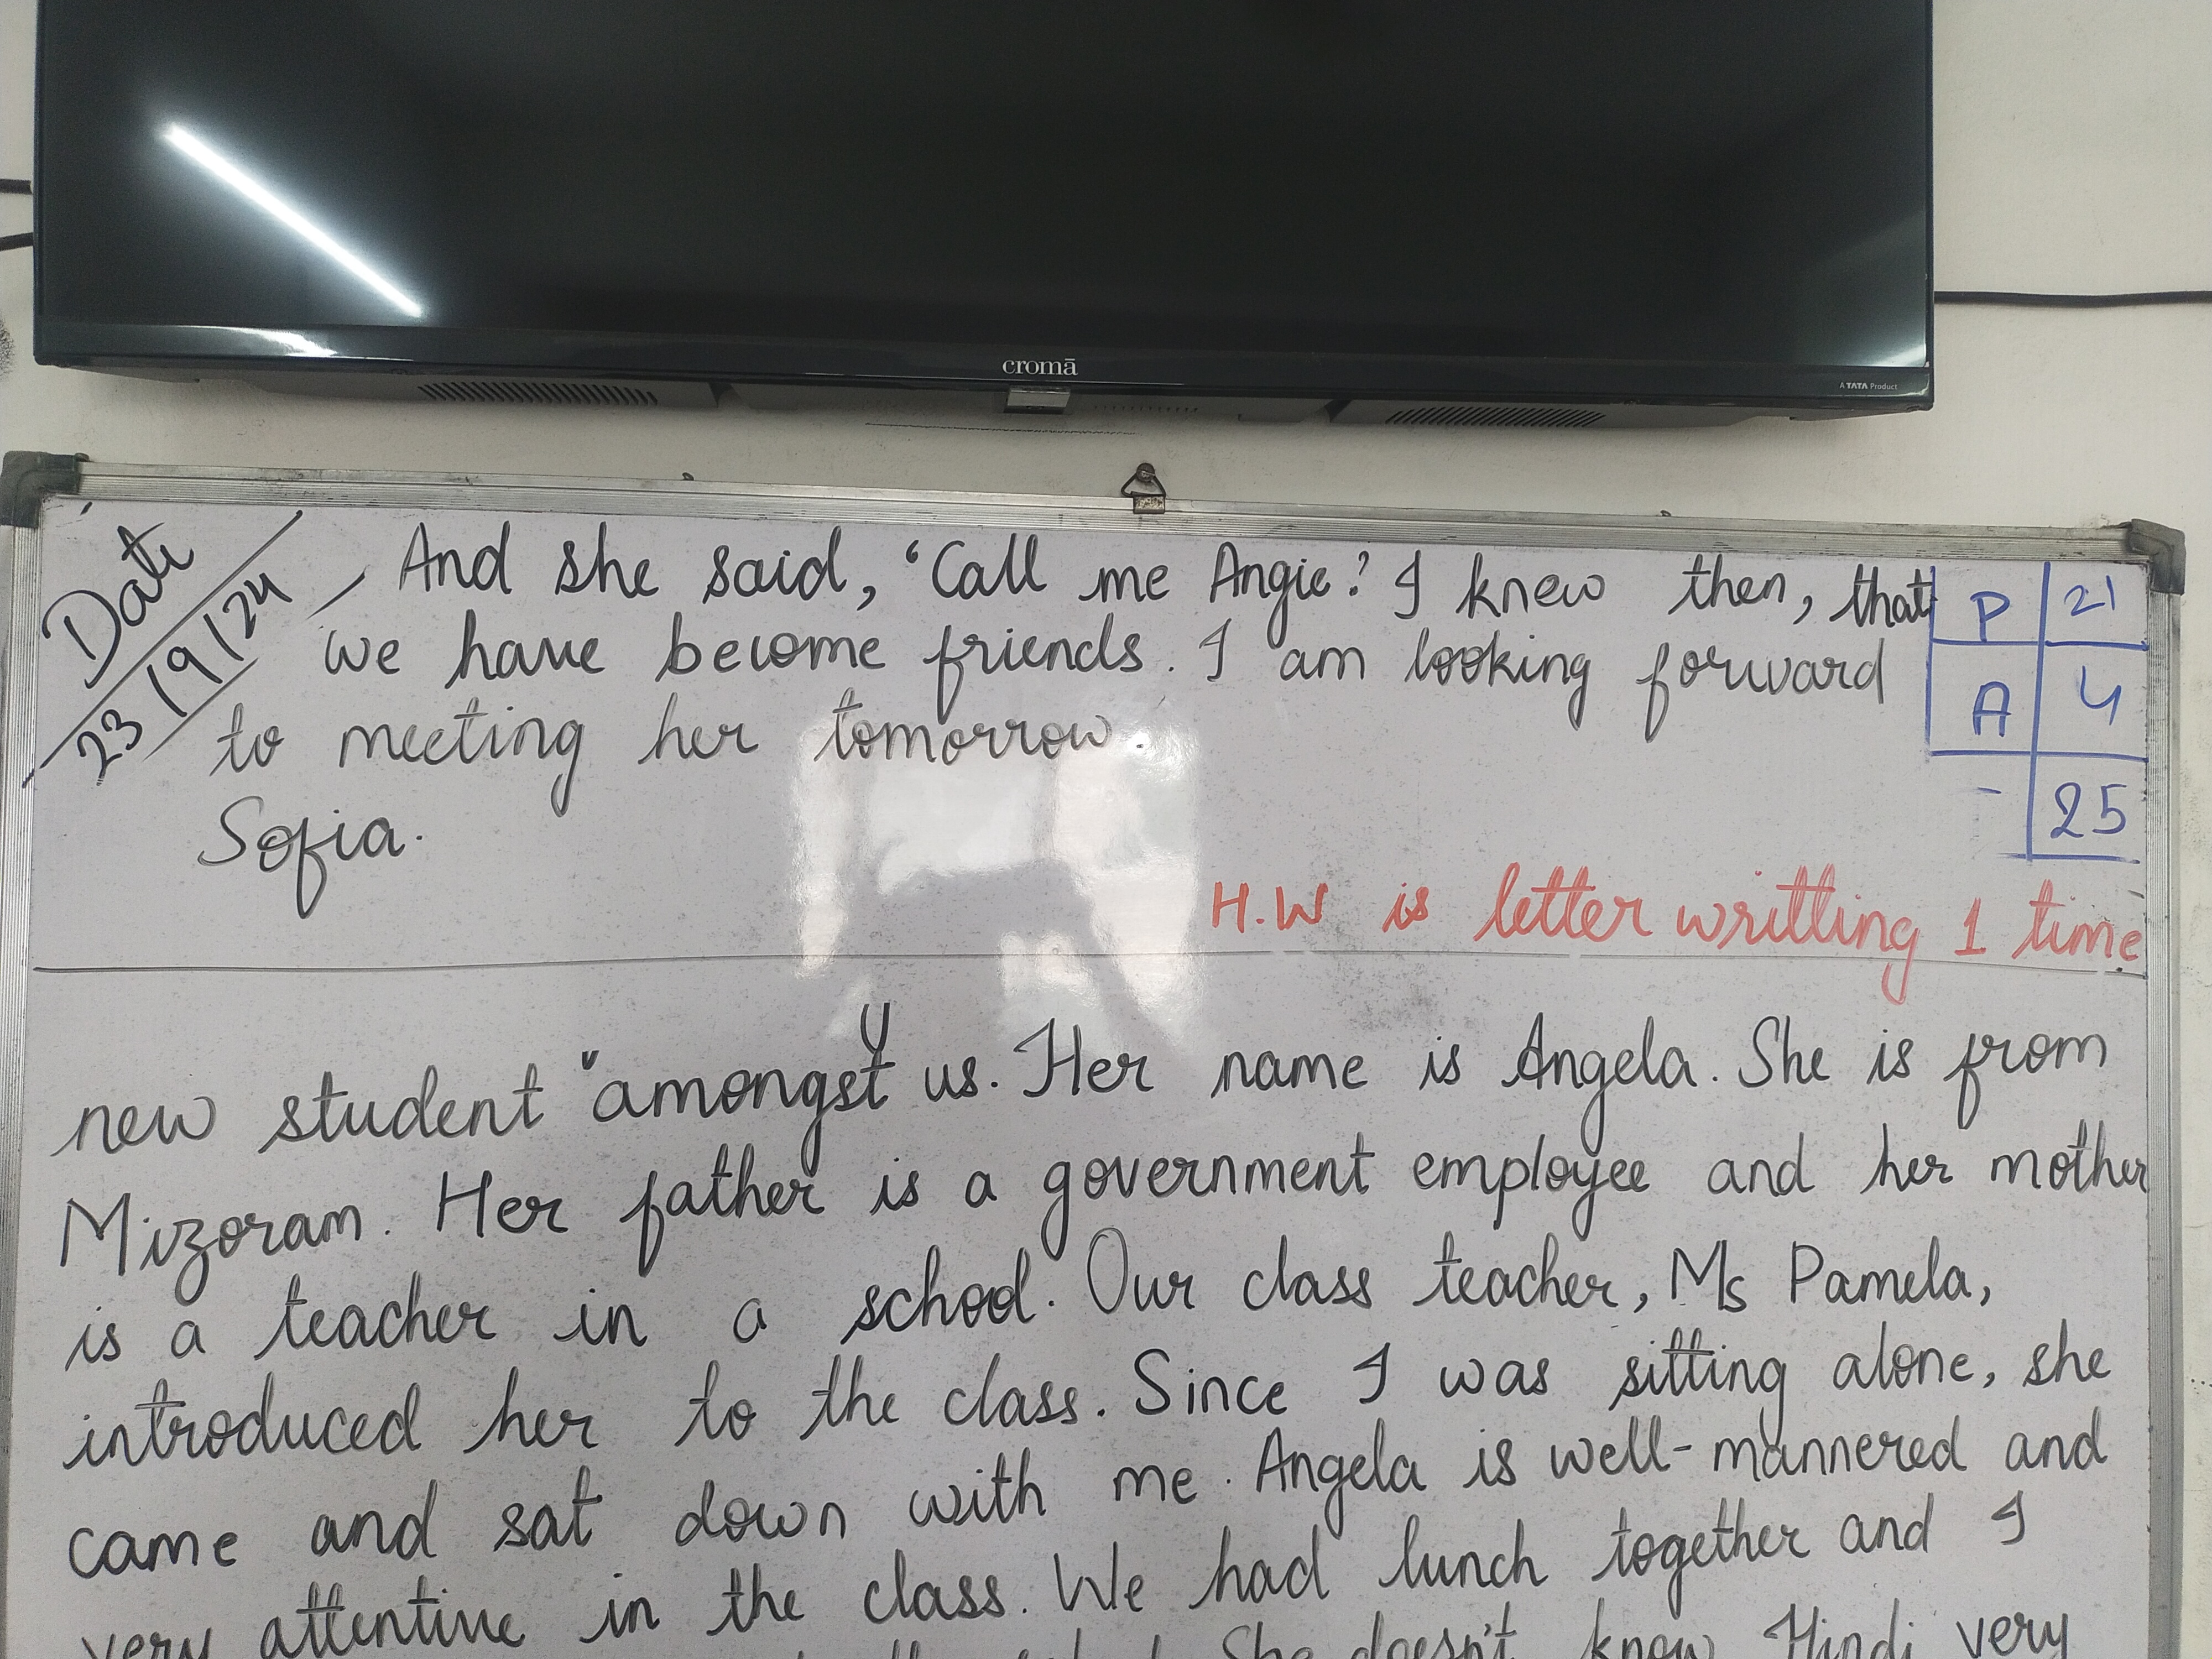 cromā
A TATA Product
Date
23/9/24
And she said, 'Call me Angie'. I knew then, that
we have become friends. I am looking forward
to meeting her tomorrow.
Sofia.
P 21
A 4
- 25
H.W is letter writting 1 time
new student "amongst us. Her name is Angela. She is from
Mizoram. Her father is a government employee and her mother
is a teacher in a school. Our class teacher, Ms Pamela,
introduced her to the class. Since I was sitting alone, she
came and sat down with me. Angela is well-mannered and
very attentive in the class. We had lunch together and I
She doesn't know Hindi very